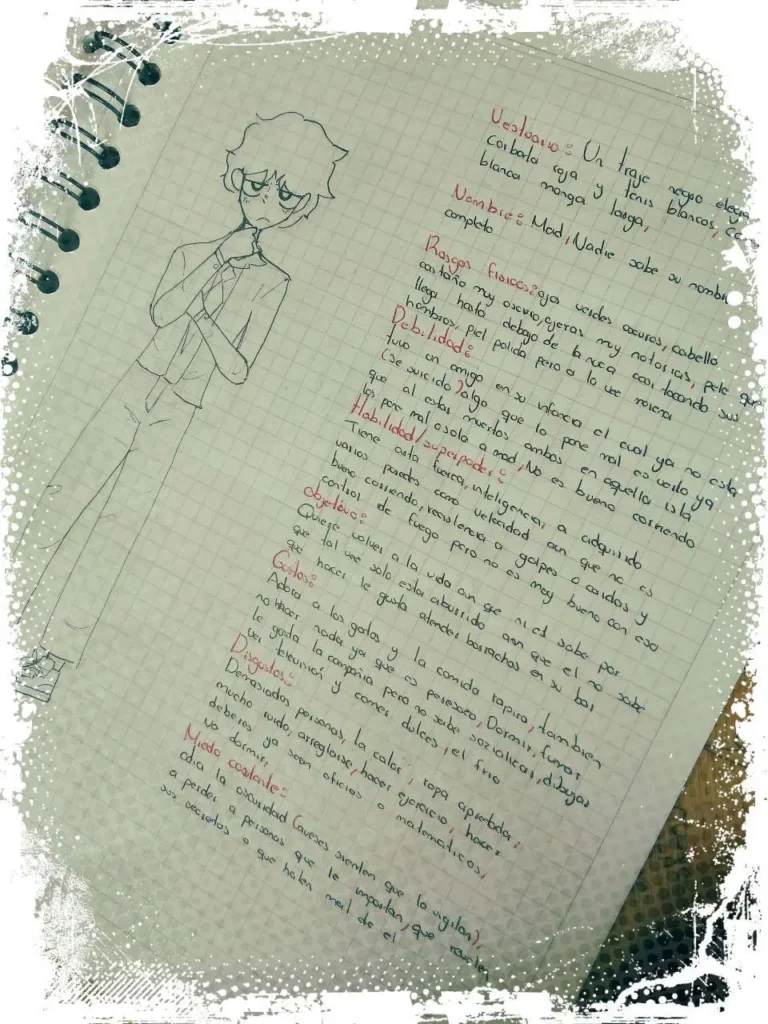 Vestuario: Un traje negro
corbata roja y tenis blancos,
blanca manga larga,
Nombre: Mad, Nadie sabe su nombre
completo
Rasgos fisicos: ojos verdes oscuros, cabello
castaño muy oscuro, ojeras muy notorias, pelo que
llega hasta debajo de la nuca casi tocando sus
hombros, piel palida pero a la vez
Debilidad:
tuvo un amigo en su infancia el cual ya no esta
(se suicido) algo que lo pone mal es verlo ya
que al estar muertos ambos en aquella isla
los pone mal o solo a mad, No es bueno corriendo
Habilidad/superpoder:
Tiene arta fuerza, inteligencia, a adquirido
varios poderes como velocidad aun que no es
bueno corriendo, resistencia a golpes o caidas y
control de fuego pero no es muy bueno con eso
objetivo:
Quiere volver a la vida aun que ni el sabe por
que tal vez solo esta aburrido aun que el no sabe
que hacer le gusta atender borrachos en su bar
Gustos:
Adora a los gatos y la comida rapida, tambien
no hacer nada ya que es perezoso, Dormir, fumar
le gusta la compañia pero no sabe sozializar, dibujar
ver television y comer dulces, el frio
Disgustos:
Demasiadas personas, la calor, ropa apretada,
mucho ruido, arreglarse, hacer ejercicio, hacer
deberes ya sean oficios o matematicos,
no dormir,
Miedo costante:
odia la oscuridad (aveses sienten que lo vigilan),
a perder a personas que le importan, que revelen
sus secretos o que hablen mal de el